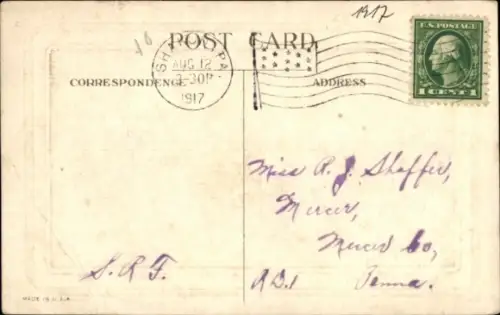 1917
POST CARD
SHA PA
AUG 12
3-30P
1917
U.S. POSTAGE
1 CENT 1
CORRESPONDENCE
ADDRESS
Miss R. J. Shaffer,
Mercer,
Mercer Co,
R.D.1 Penna.
S.R.F.
MADE IN U.S.A.